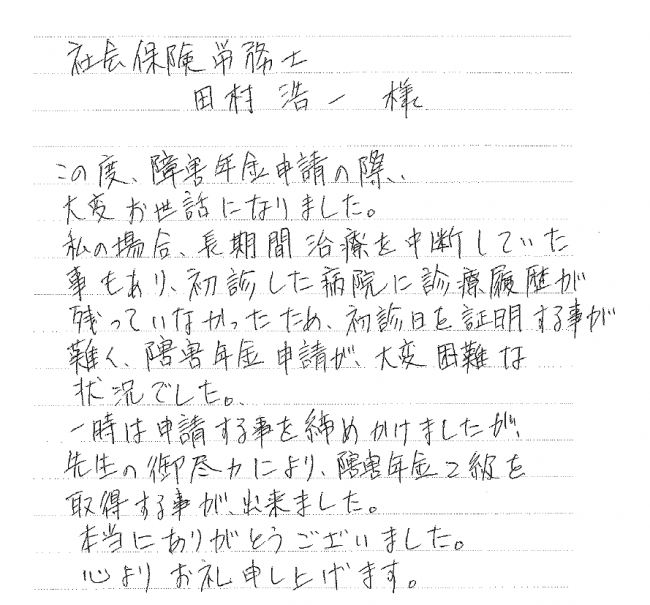 社会保険労務士
田村浩一 様
この度、障害年金申請の際、
大変お世話になりました。
私の場合、長期間治療を中断していた
事もあり、初診した病院に診療履歴が
残っていなかったため、初診日を証明する事が
難く、障害年金申請が、大変困難な
状況でした。
一時は申請する事を締めかけましたが、
先生の御尽力により、障害年金2級を
取得する事が、出来ました。
本当にありがとうございました。
心よりお礼申し上げます。